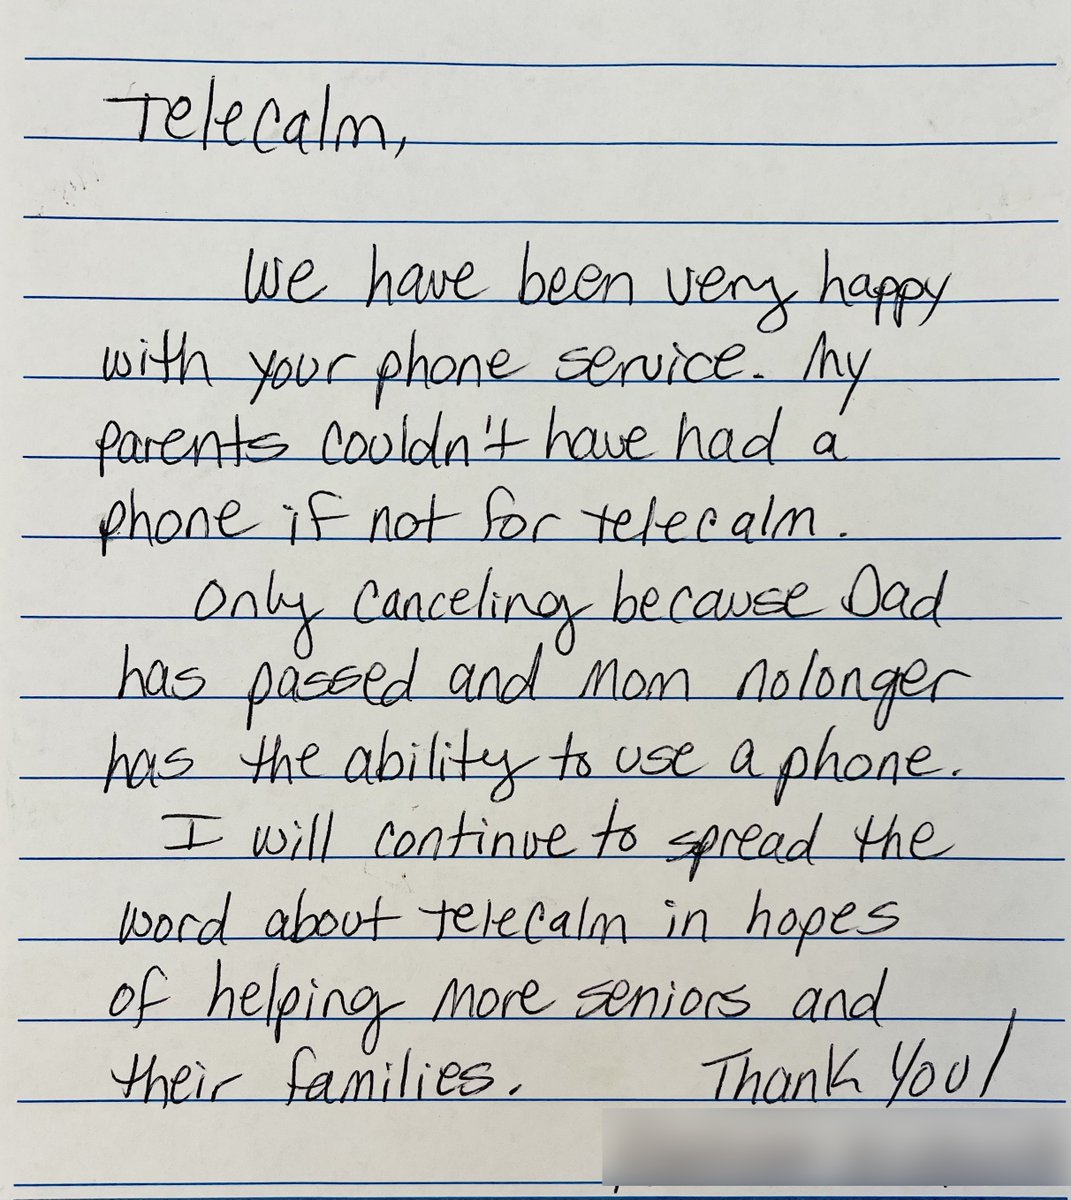 Telecalm,
We have been very happy
with your phone service. My
parents couldn't have had a
phone if not for telecalm.
Only canceling because Dad
has passed and Mom nolonger
has the ability to use a phone.
I will continue to spread the
word about telecalm in hopes
of helping more seniors and
their families. Thank You!